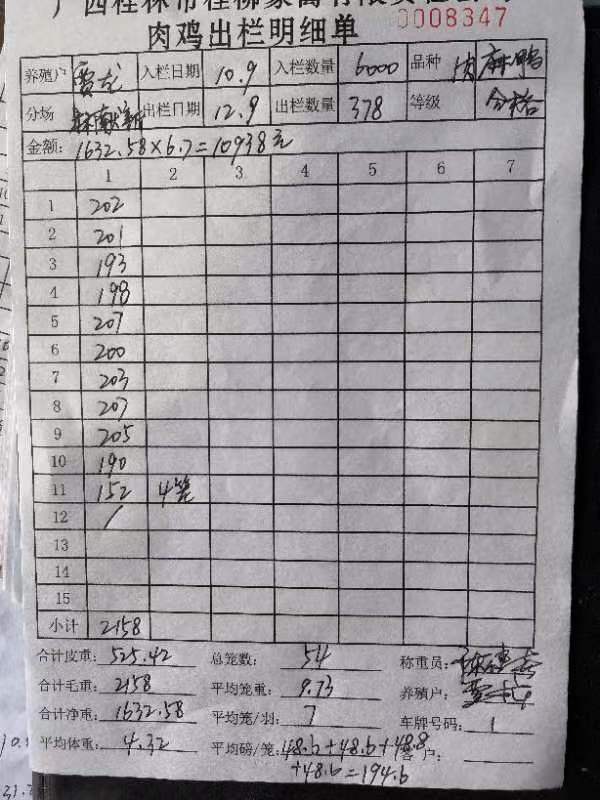 广西桂林市桂柳家禽有限责任公司
0008347
肉鸡出栏明细单
养殖户 贾龙 入栏日期 10.9 入栏数量 6000 品种
分场 出栏日期 12.9 出栏数量 378 等级 合格
金额: 1632.58×6.7=10938元
1 2 3 4 5 6 7
1 202
2 201
3 193
4 198
5 207
6 200
7 203
8 207
9 205
10 190
11 152 4笼
12 /
13
14
15
小计 2158
合计皮重: 525.42 总笼数: 54 称重员:
合计毛重: 2158 平均笼重: 9.73 养殖户:
合计净重: 1632.58 平均笼/羽: 7 车牌号码: 1
平均体重: 4.32 平均磅/笼: 48.6+48.6+48.8 客户:
+48.6=194.6